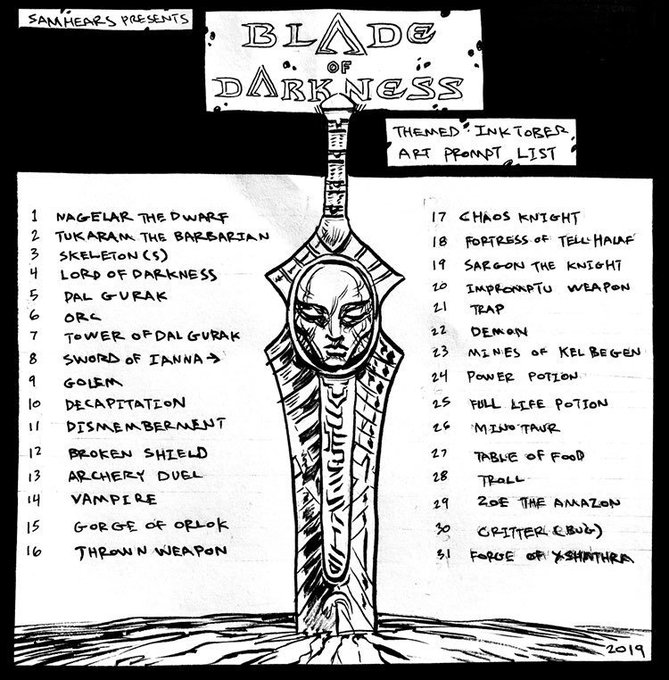 SAMHEARS PRESENTS
BLADE
OF
DARKNESS
THEMED INKTOBER
ART PROMPT LIST
1 NAGELAR THE DWARF
2 TUKARAM THE BARBARIAN
3 SKELETON(S)
4 LORD OF DARKNESS
5 DAL GURAK
6 ORC
7 TOWER OF DAL GURAK
8 SWORD OF IANNA →
9 GOLEM
10 DECAPITATION
11 DISMEMBERMENT
12 BROKEN SHIELD
13 ARCHERY DUEL
14 VAMPIRE
15 GORGE OF ORLOK
16 THROWN WEAPON
17 CHAOS KNIGHT
18 FORTRESS OF TELL HALAF
19 SARGON THE KNIGHT
20 IMPROMPTU WEAPON
21 TRAP
22 DEMON
23 MINES OF KELBEGEN
24 POWER POTION
25 FULL LIFE POTION
26 MINOTAUR
27 TABLE OF FOOD
28 TROLL
29 ZOE THE AMAZON
30 CRITTER (BUG)
31 FORGE OF XSHATHRA
2019